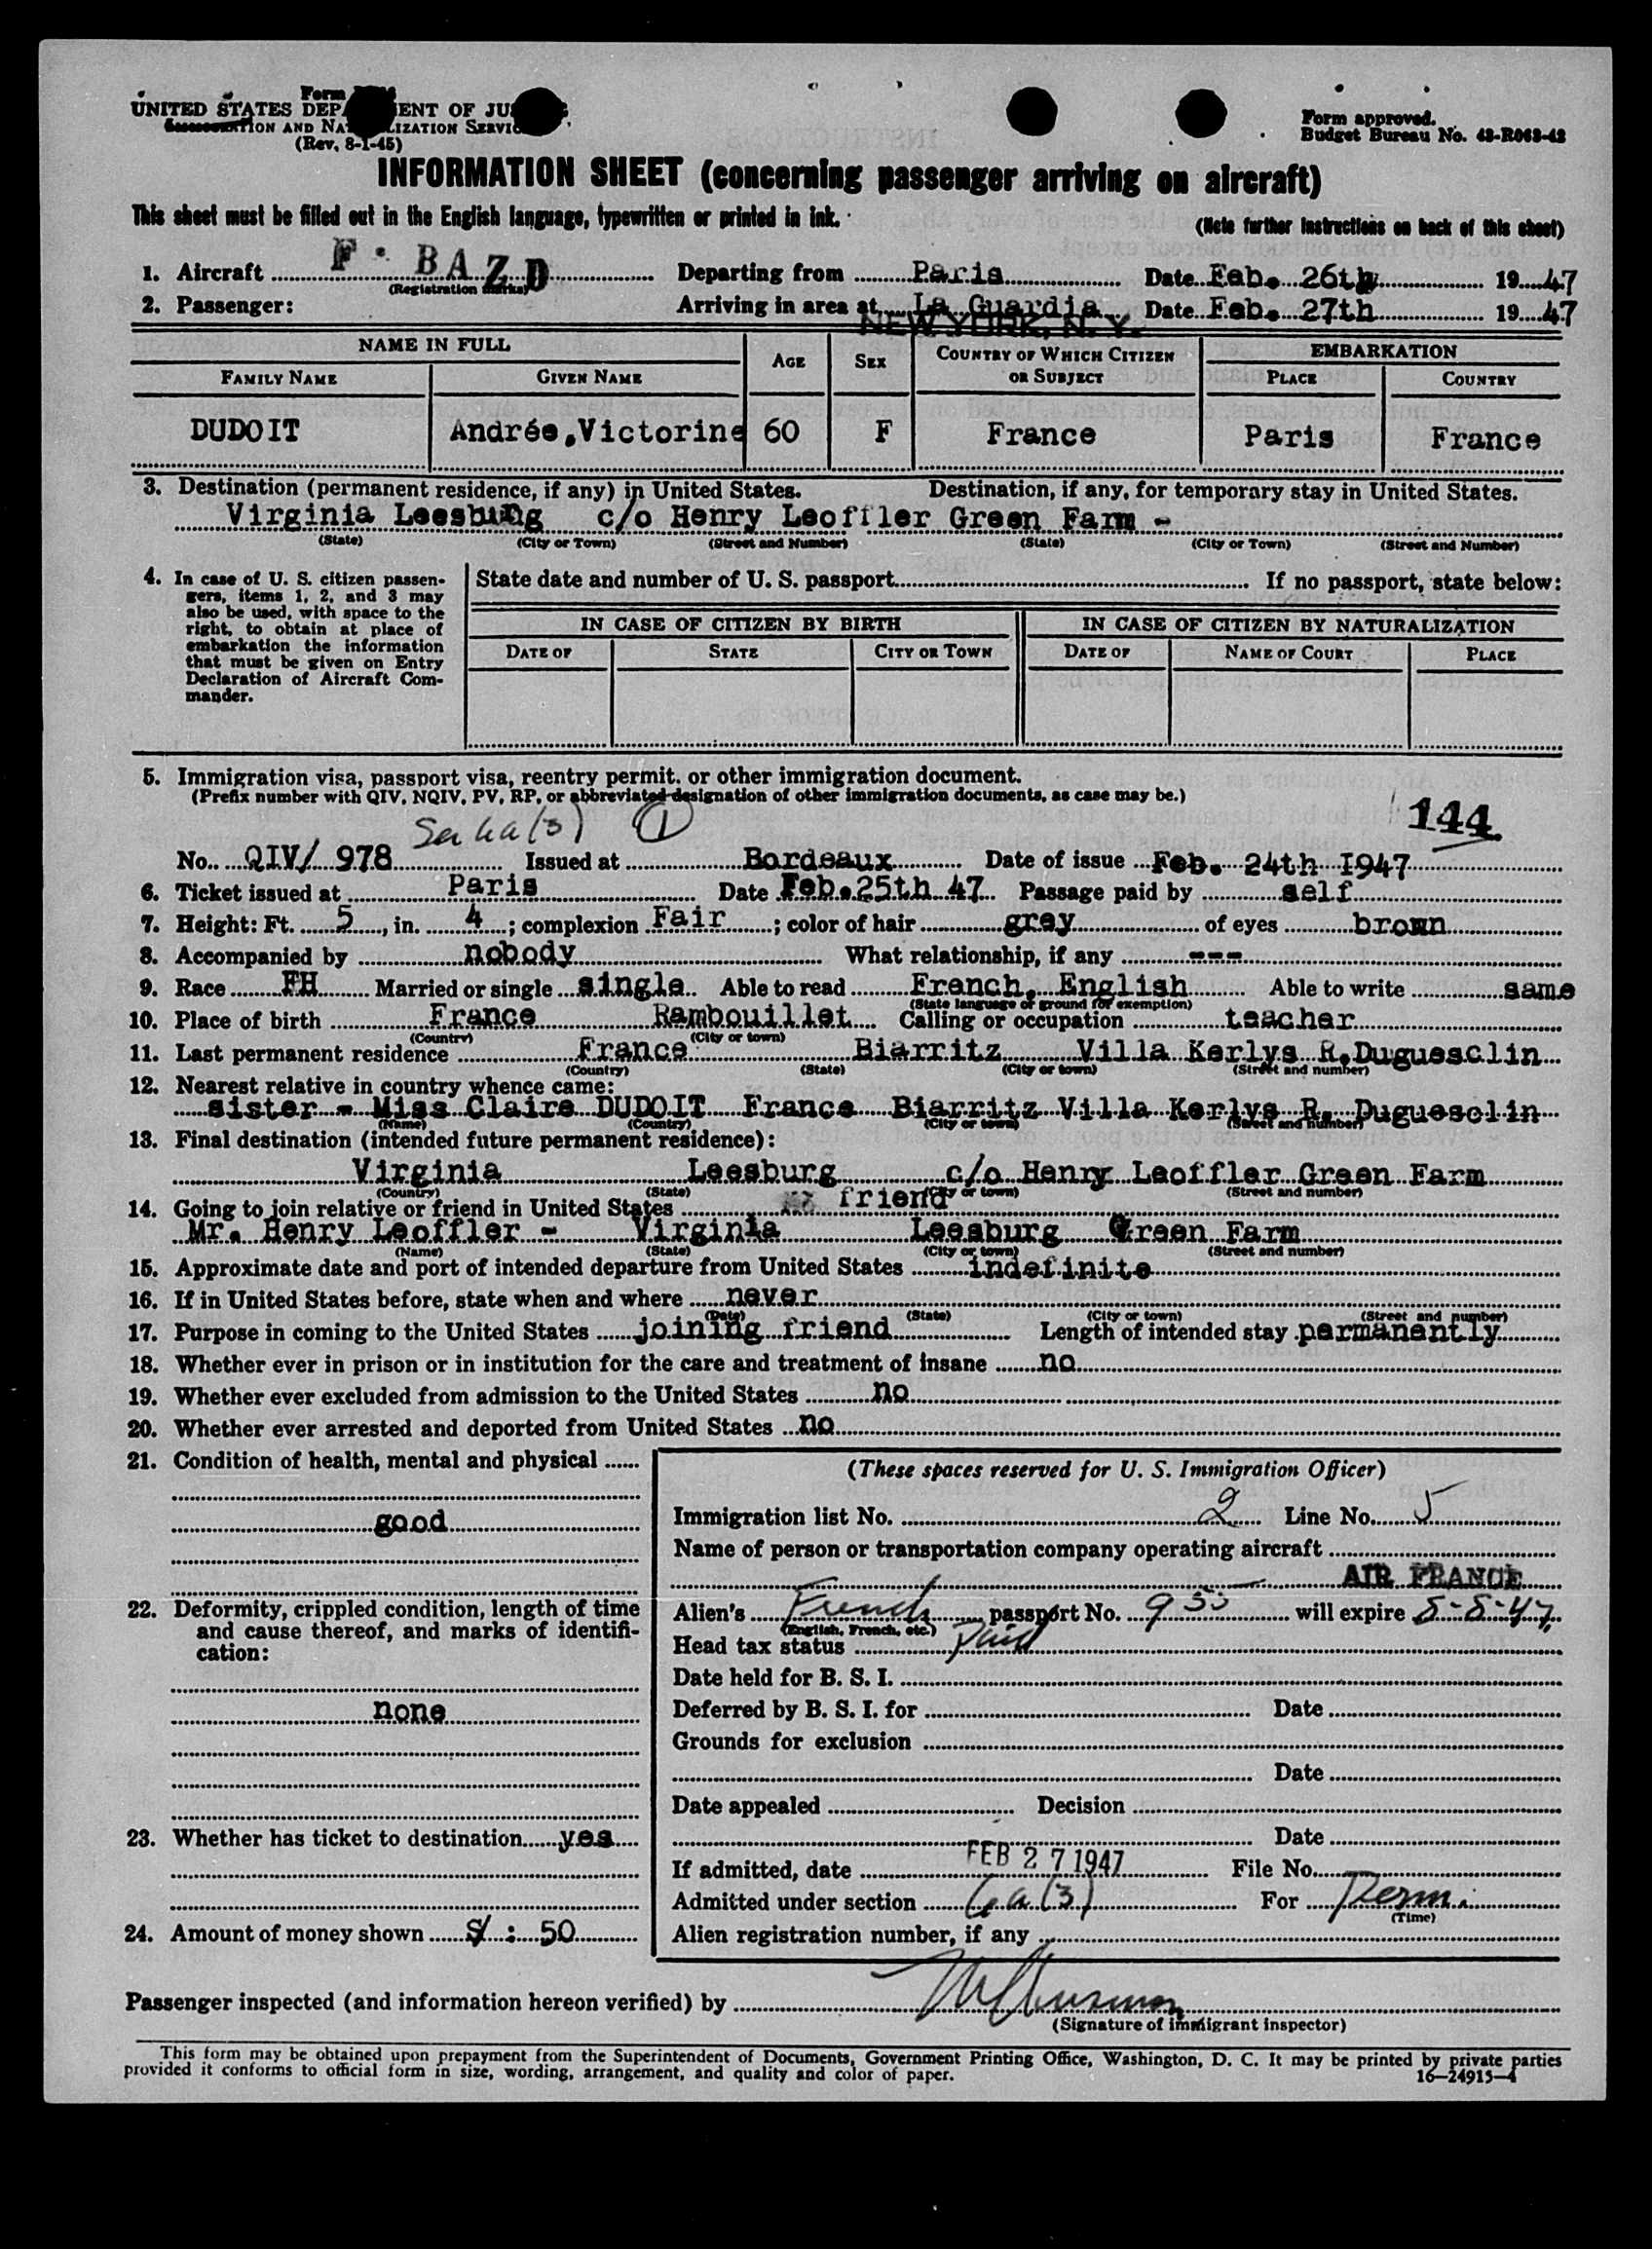 Form
UNITED STATES DEP ENT OF JUS
ION AND NA LIZATION SERVIC
(Rev. 8-1-45)
Form approved.
Budget Bureau No. 43-R063-42
INFORMATION SHEET (concerning passenger arriving on aircraft)
This sheet must be filled out in the English language, typewritten or printed in ink.
(Note further instructions on back of this sheet)
1. Aircraft F · BAZD Departing from Paris Date Feb. 26th 1947
(Registration marks)
2. Passenger: Arriving in area at La Guardia Date Feb. 27th 1947
NEW YORK, N. Y.
NAME IN FULL AGE SEX COUNTRY OF WHICH CITIZEN OR SUBJECT EMBARKATION
FAMILY NAME GIVEN NAME PLACE COUNTRY
DUDOIT Andrée,Victorine 60 F France Paris France
3. Destination (permanent residence, if any) in United States. Destination, if any, for temporary stay in United States.
Virginia Leesburg c/o Henry Leoffler Green Farm -
(State) (City or Town) (Street and Number) (State) (City or Town) (Street and Number)
4. In case of U. S. citizen passen-
gers, items 1, 2, and 3 may
also be used, with space to the
right, to obtain at place of
embarkation the information
that must be given on Entry
Declaration of Aircraft Com-
mander.
State date and number of U. S. passport If no passport, state below:
IN CASE OF CITIZEN BY BIRTH IN CASE OF CITIZEN BY NATURALIZATION
DATE OF STATE CITY OR TOWN DATE OF NAME OF COURT PLACE
5. Immigration visa, passport visa, reentry permit, or other immigration document.
(Prefix number with QIV, NQIV, PV, RP, or abbreviated designation of other immigration documents, as case may be.)
(3) 1 144
No. QIV/ 978 Issued at Bordeaux Date of issue Feb. 24th 1947
6. Ticket issued at Paris Date Feb.25th 47 Passage paid by self
7. Height: Ft. 5, in. 4; complexion Fair; color of hair grey of eyes brown
8. Accompanied by nobody What relationship, if any ---
9. Race FH Married or single single Able to read French, English Able to write same
(State language or ground for exemption)
10. Place of birth France Rambouillet Calling or occupation teacher
(Country) (City or town)
11. Last permanent residence France Biarritz Villa Kerlys R.Duguesclin
(Country) (State) (City or town) (Street and number)
12. Nearest relative in country whence came:
sister - Miss Claire DUDOIT France Biarritz Villa Kerlys R. Duguesclin
(Name) (Country) (City or town) (Street and number)
13. Final destination (intended future permanent residence):
Virginia Leesburg c/o Henry Leoffler Green Farm
(Country) (State) (City or town) (Street and number)
14. Going to join relative or friend in United States friend
Mr. Henry Leoffler - Virginia Leesburg Green Farm
(Name) (State) (City or town) (Street and number)
15. Approximate date and port of intended departure from United States indefinite
16. If in United States before, state when and where never
(Date) (State) (City or town) (Street and number)
17. Purpose in coming to the United States joining friend Length of intended stay permanently
18. Whether ever in prison or in institution for the care and treatment of insane no
19. Whether ever excluded from admission to the United States no
20. Whether ever arrested and deported from United States no
21. Condition of health, mental and physical
good
22. Deformity, crippled condition, length of time
and cause thereof, and marks of identifi-
cation:
none
23. Whether has ticket to destination yes
24. Amount of money shown $ : 50
(These spaces reserved for U. S. Immigration Officer)
Immigration list No. 2 Line No. 5
Name of person or transportation company operating aircraft
AIR FRANCE
Alien's French passport No. 955 will expire 8-8-47
(English, French, etc.)
Head tax status Paid
Date held for B. S. I.
Deferred by B. S. I. for Date
Grounds for exclusion
Date
Date appealed Decision
Date
If admitted, date FEB 27 1947 File No.
Admitted under section 6a(3) For Perm.
(Time)
Alien registration number, if any
Passenger inspected (and information hereon verified) by
(Signature of immigrant inspector)
This form may be obtained upon prepayment from the Superintendent of Documents, Government Printing Office, Washington, D. C. It may be printed by private parties
provided it conforms to official form in size, wording, arrangement, and quality and color of paper. 16—24915-4